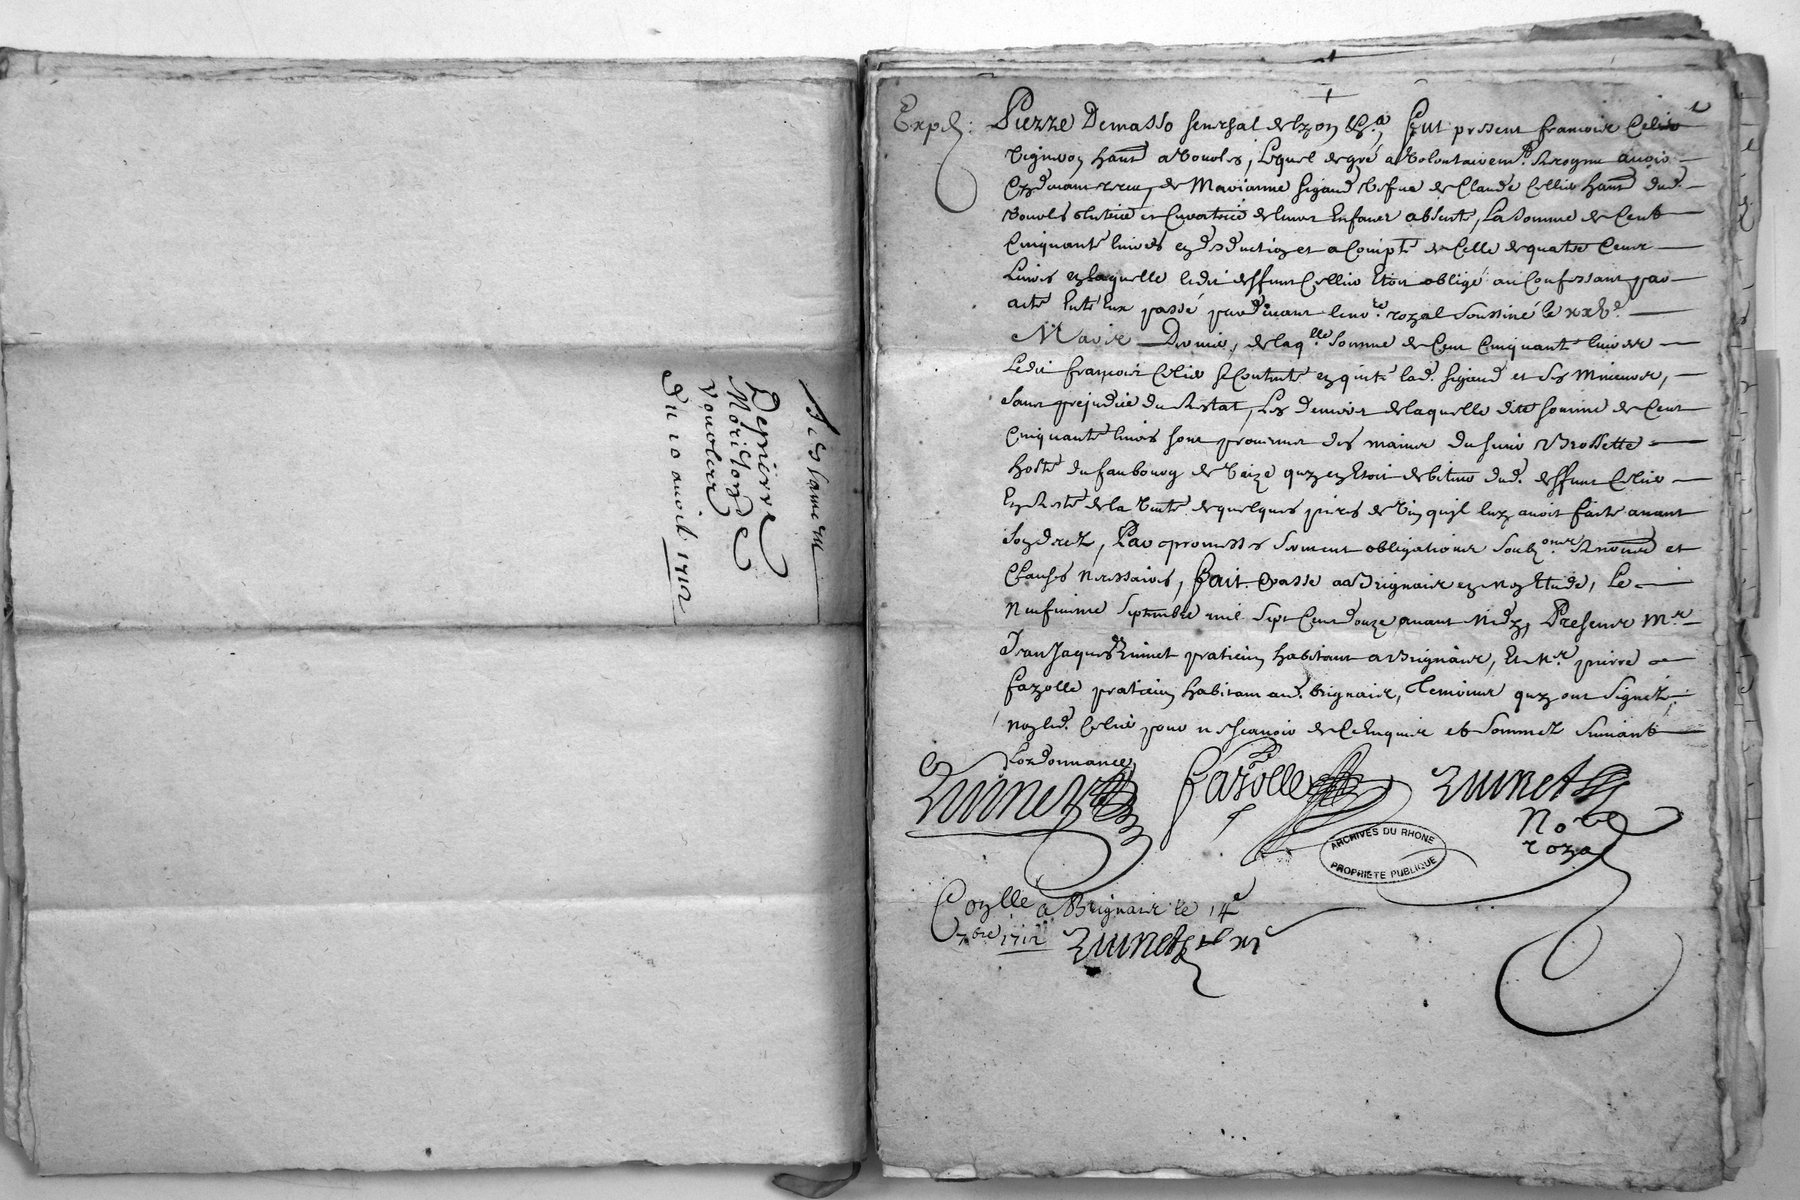 Testament
De pierre
Morillon de
Vourles
Du 10 avril 1712
Exped.
Pierre Demasso senechal de lyon &.a, fut present francois Celier
vigneron habt a Vourles, lequel de gré a volontairemt. Recogneu avoir
Cy devant receu, de Marianne sigaud vefve de Claude Cellier habt dud.
Vourles tutrice et Curatrice de leurs Enfans absente, La somme de Cent
Cinquante livres en deduction et a Compte de Celle de quatre Cent
Livres en laquelle ledit deffunt Cellier Etoit obligé au Confessant par
acte Entre Eux passé pardevant le nore. royal soussiné le xxve.
Mars Dernier, de laqlle somme de Cent Cinquante livres
Ledit françois Celier se Contente en quitte lad. sigaud et ses Mineurs,
sans prejudice du Restat, Les deniers de laquelle dite somme de Cent
Cinquante livres sont provenus des mains du sieur Brossette
hoste du faubourg de Vaize quy en Etoit debiteur dud. deffunt Celier
En Reste de la Vente de quelques pieces de Vin qu'il luy avoit faite avant
son decez, Par promesses serment obligations soubmons Renonced et
Clauses Necessaires, fait & passé a Brignais en mon Etude, Le
Neufvieme septembre mil sept Cent douze avant Midy, Presens Mr
Jean Jacques Zuinet praticien habitant a Brignais, Et Mr. pierre
fazolle praticien habitant aud. brignais, Temoins quy ont signéz,
non led. Celier pour ne sçavoir de Ce Enquis et sommez suivant
Lordonnance
Zuinet fazolle Zuinet
Nore
royal
ARCHIVES DU RHONE
PROPRIÉTÉ PUBLIQUE
Conlle a Brignais le 14e
7bre 1712 Zuinet